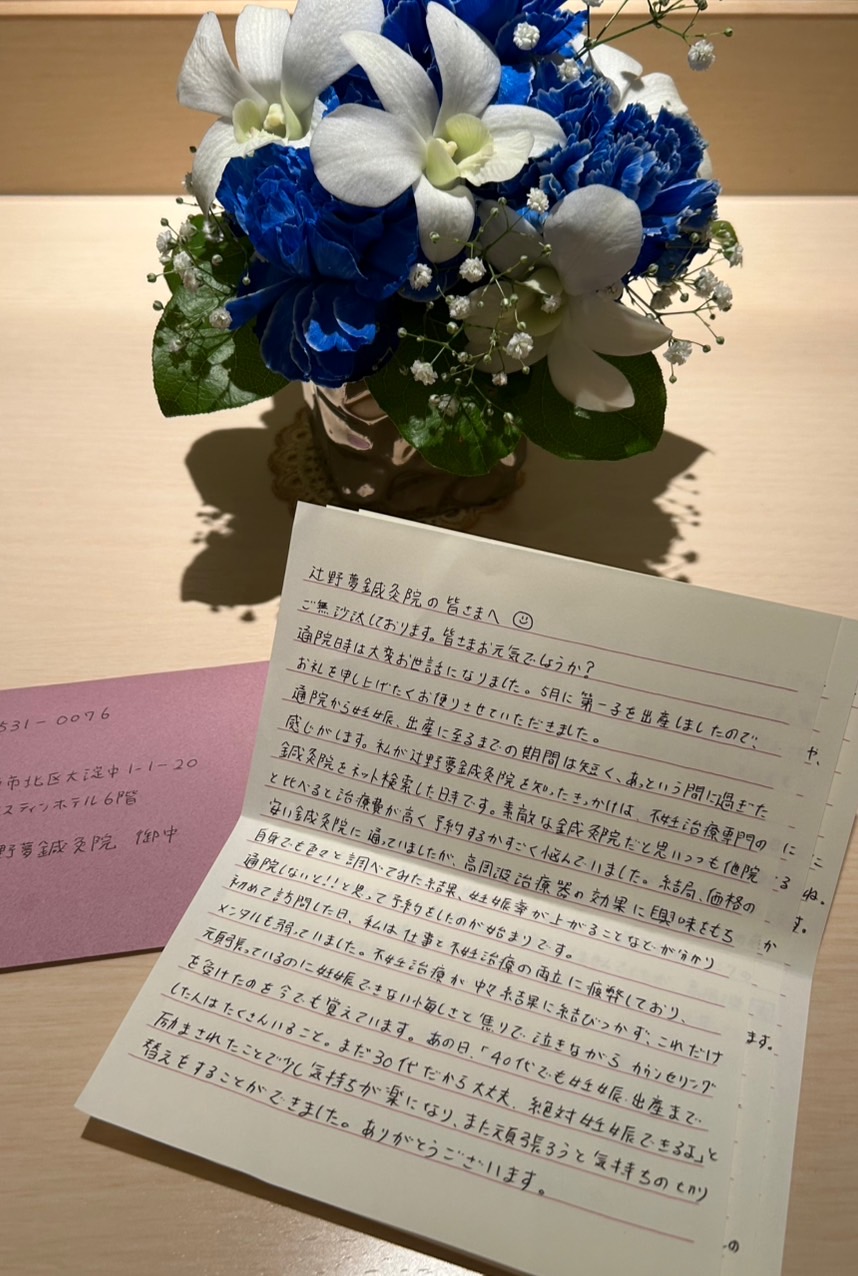 辻野夢鍼灸院の皆さまへ ☺
ご無沙汰しております。皆さまお元気でしょうか?
通院時は大変お世話になりました。5月に第一子を出産しましたので、
お礼を申し上げたくお便りさせていただきました。
通院から妊娠、出産に至るまでの期間は短く、あっという間に過ぎた
感じがします。私が辻野夢鍼灸院を知ったきっかけは、不妊治療専門の
鍼灸院をネット検索した時です。素敵な鍼灸院だと思いつつも他院
と比べると治療費が高く予約するかすごく悩んでいました。結局、価格の
安い鍼灸院に通っていましたが、高周波治療器の効果に興味をもち
自身でも色々と調べてみた結果、妊娠率が上がることなどが分かり
通院しないと!!と思って予約をしたのが始まりです。
初めて訪問した日、私は仕事と不妊治療の両立に疲弊しており、
メンタルも弱っていました。不妊治療が中々結果に結びつかず、これだけ
頑張っているのに妊娠できない悔しさと焦りで泣きながらカウンセリング
を受けたのを今でも覚えています。あの日、「40代でも妊娠、出産まで
した人はたくさんいること。まだ30代だから大丈夫、絶対妊娠できるよ」と
励まされたことで少し気持ちが楽になり、また頑張ろうと気持ちの切り
替えをすることができました。ありがとうございます。
や、
に こ
る ね。
す。
か
ます。
の
531-0076
市北区大淀中1-1-20
スティンホテル6階
野夢鍼灸院 御中